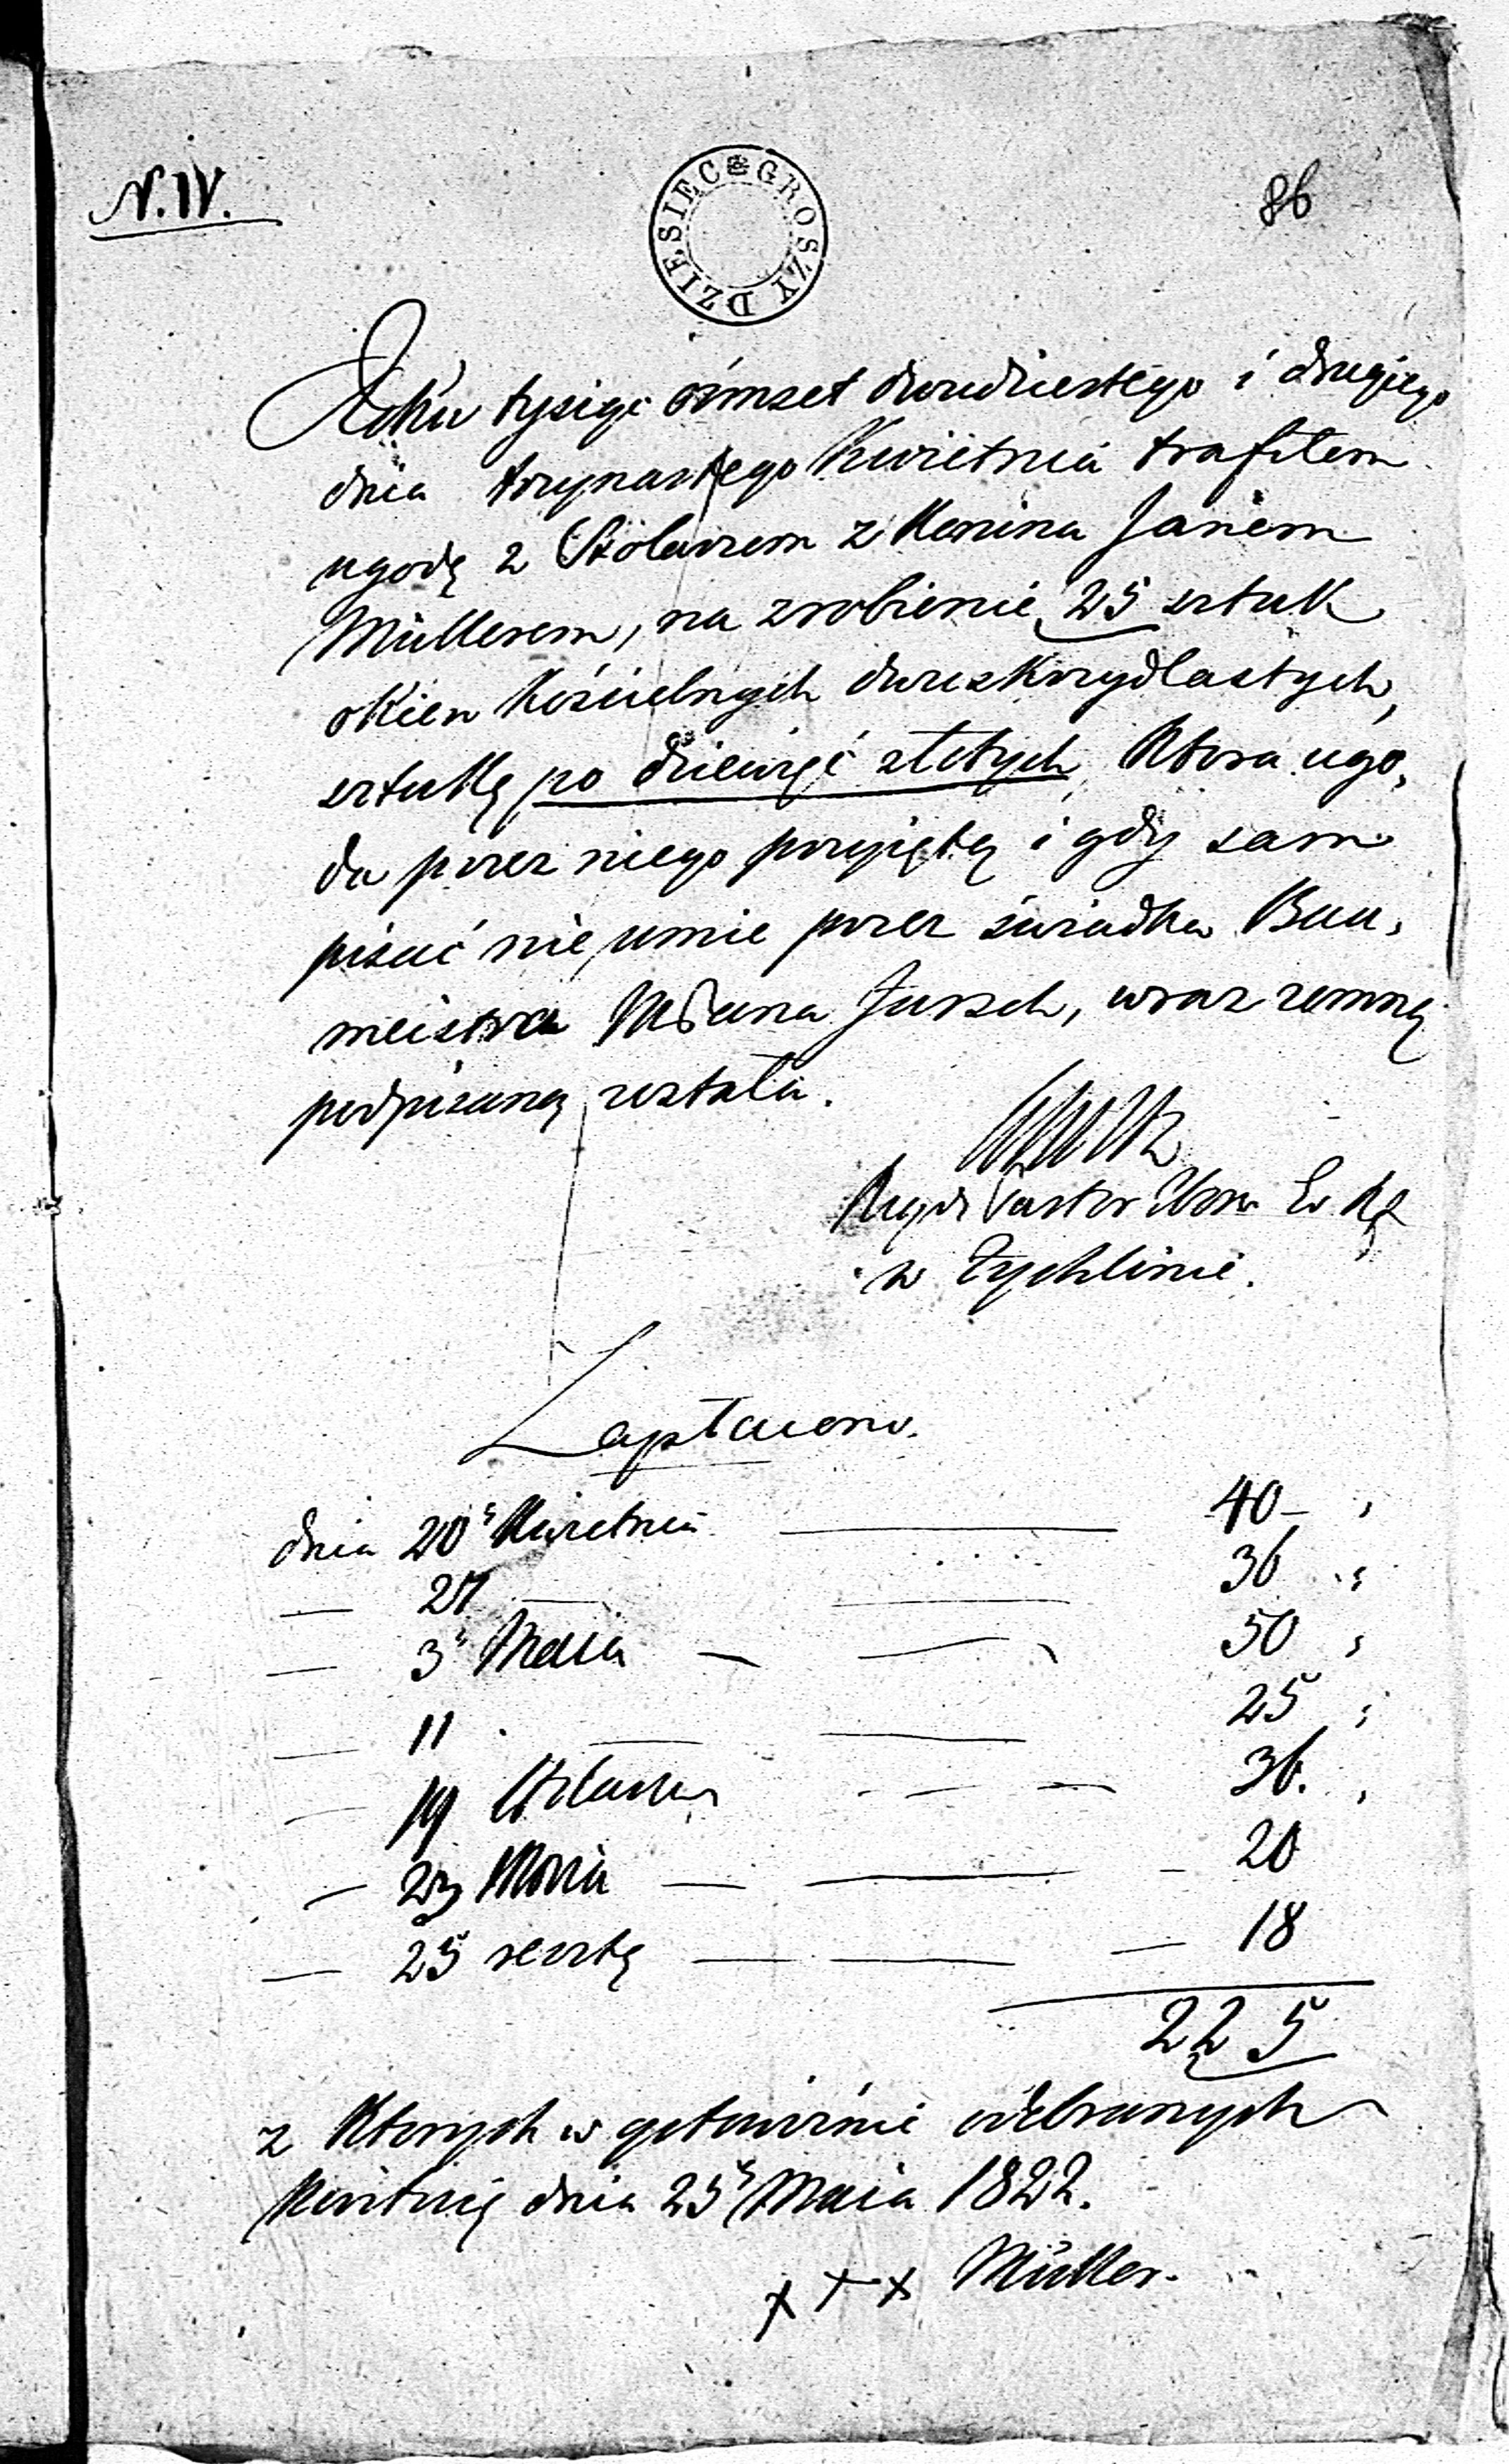 N. IV.
DZIESIEC GROSZY
86
Roku tysiąc ośmset dwudziestego i drugiego
dnia trzynastego Kwietnia trafiłem
ugodę z Stolarzem z Konina Janem
Müllerem, na zrobienie 25 sztuk
okien kościelnych dwuskrzydlastych,
sztukę po dziewięć złotych, Która ugo,
da przez niego przyiętą i gdy sam
pisać nie umie przez świadka Bau,
meistra Jursch, wraz zemną
podpisaną została.
Pastor
w Żychlinie.
Zapłacono.
dnia 20 Kwietnia 40 -
— 27 — 36
— 3 Maia — 50
— 11 — 25
— 19 36.
— 23 Maia — 20
— 25 resztę — 18
225
z Których w gotowiźnie odebranych
Kwituię dnia 25 Maia 1822.
x x x Müller.